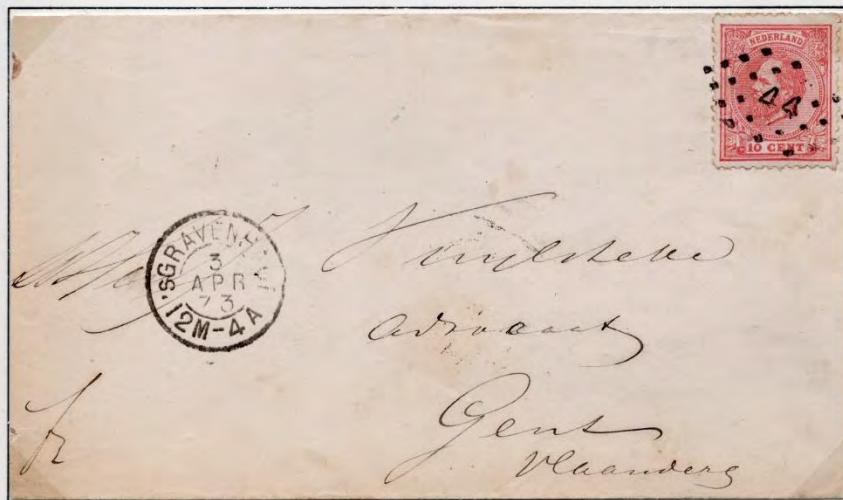 NEDERLAND
44
10 CENT
'SGRAVENHAGE
3
APR
73
12M-4A
Vuylsteke
advocaat
Gent
Vlaanderen
fr